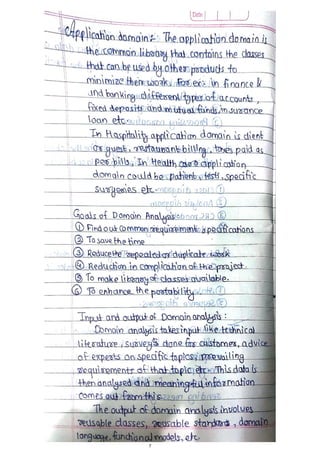 Date
Application domain:- The application domain is
the common library that contains the classes
that can be used by other products to
minimize their work. For ex:- in finance &
and banking different types of accounts,
fixed deposits and mutual funds, insurance
loan etc.
In Hospitality application domain is client
or guest, restaurant billing, taxes paid as
per bills, In Health care application
domain could be patient, tests, specific
surgeries etc.
Goals of Domain Analysis
① Find out common requirement specifications
② To save the time
③ Reduce the repeated or duplicate work
④ Reduction in complication of the project.
⑤ To make library of classes available.
⑥ To enhance the portability
Input and output of Domain analysis :
Domain analysis takes input like technical
literature, surveys done for customers, advice
of experts on specific topics, prevailing
requirements of that topic etc. This data is
then analysed and meaningful information
comes out from this.
The output of domain analysis involves
reusable classes, reusable standards, domain
language, functional models, etc